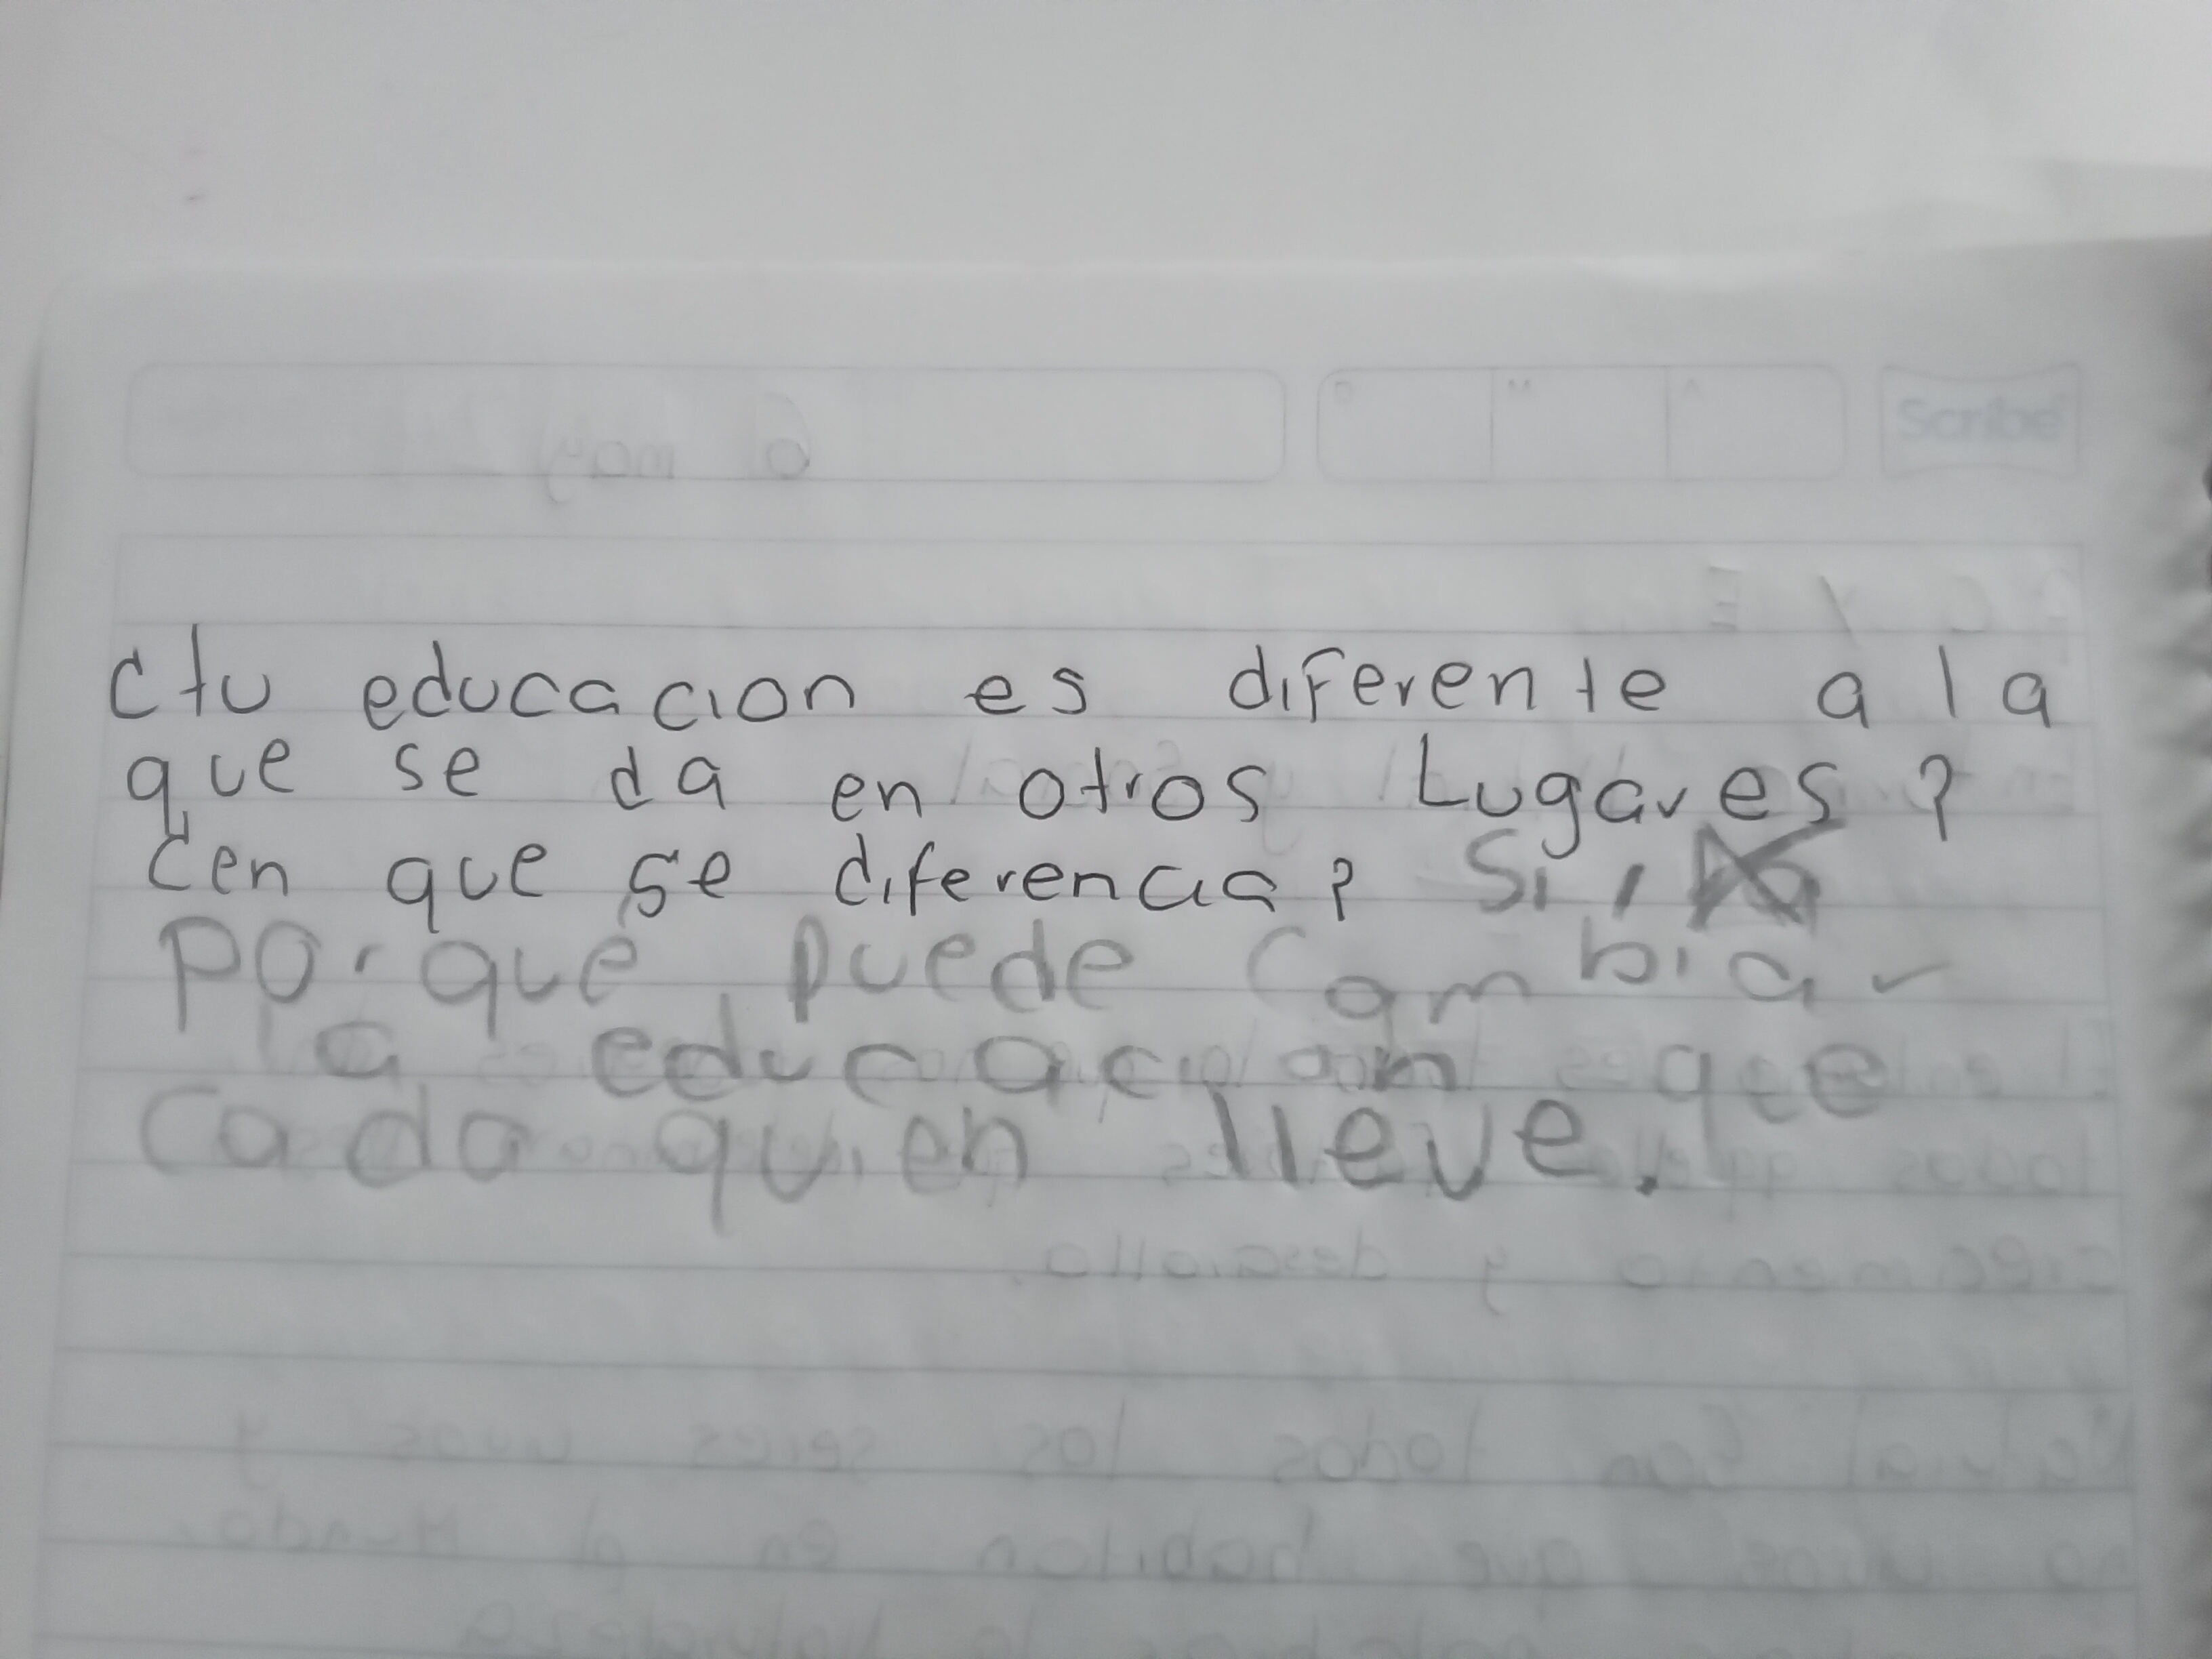 Scribe
¿tu educacion es diferente a la
que se da en otros Lugares?
¿en que se diferencia? Si,
porque puede cambiar
la educacion que
cada quien lleve.